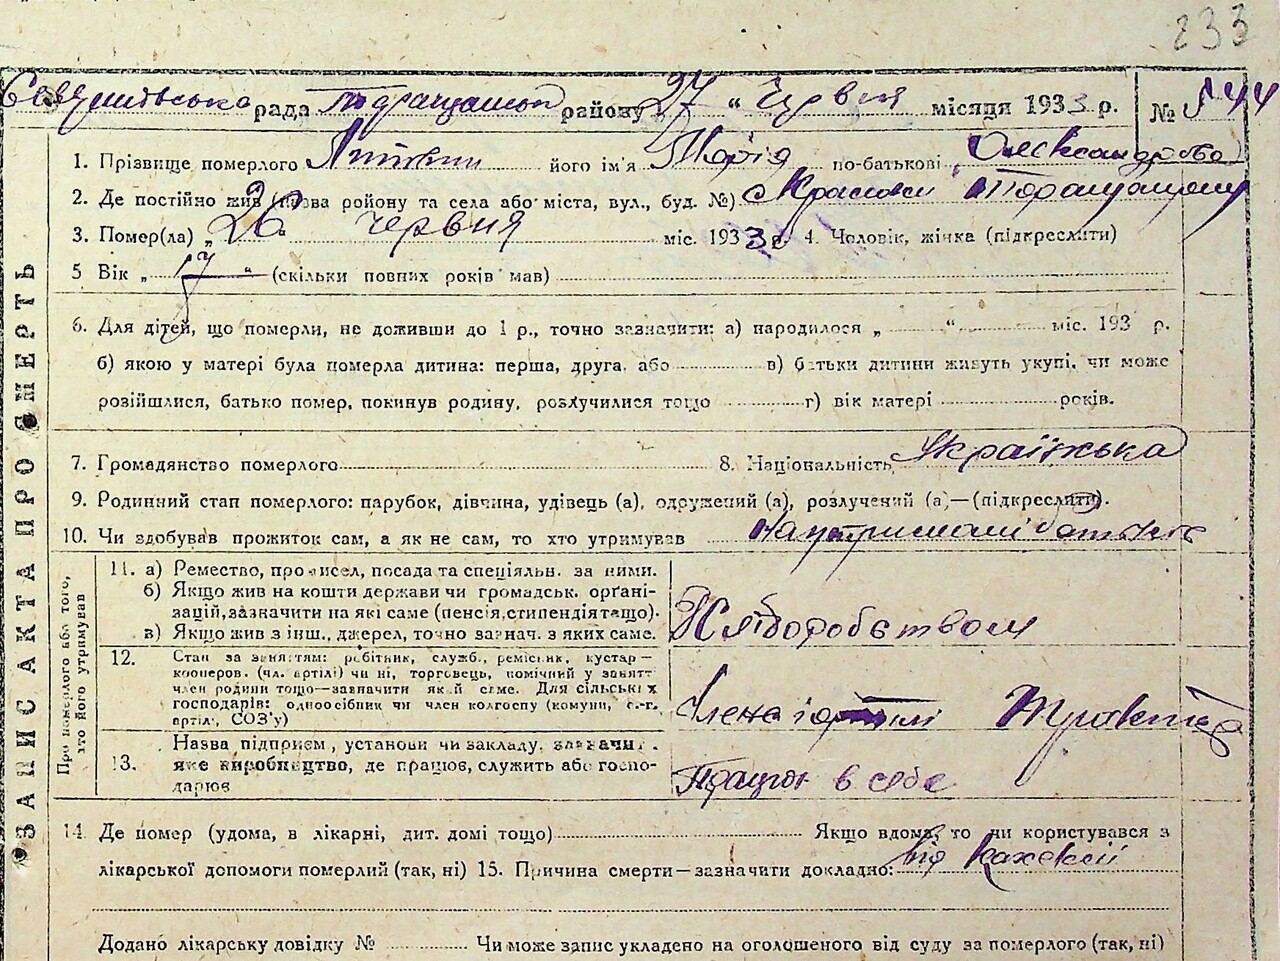 233
рада район 27 " Червня місяця 1933 р. № 544
1. Прізвище померлого Литвин його ім'я Марія по-батькові Олександрова
2. Де постійно жив (назва району та села або міста, вул., буд. №)
3. Помер(ла) „ 26 червня міс. 1933 р. 4. Чоловік, жінка (підкреслити)
5 Вік „ 17 " (скільки повних років мав)
6. Для дітей, що померли, не доживши до 1 р., точно зазначити: а) народилося „ " міс. 193 р.
б) якою у матері була померла дитина: перша, друга, або в) батьки дитини живуть укупі, чи може
розійшлися, батько помер, покинув родину, розлучилися тощо г) вік матері років.
7. Громадянство померлого 8. Національність Українська
9. Родинний стан померлого: парубок, дівчина, удівець (а), одружений (а), розлучений (а)—(підкреслити).
10. Чи здобував прожиток сам, а як не сам, то хто утримував На утриманні батьків
ЗАПИС АКТА ПРО СМЕРТЬ
Про померлого або того, хто його утримував
11. а) Ремество, промисел, посада та спеціяльн. за ними.
б) Якщо жив на кошти держави чи громадськ. орґані-
зацій, зазначити на які саме (пенсія, стипендія тощо).
в) Якщо жив з інш., джерел, точно зазнач. з яких саме.
Хліборобством
12. Стан за заняттям: робітник, служб., ремісник, кустар—
кооперов. (чл. артілі) чи ні, торговець, помічний у занятт.
член родини тощо—зазначити який саме. Для сільськ х
господарів: одноосібник чи член колгоспу (комуни, с.-г.
артілі, СОЗ'у)
Члена
13. Назва підприєм, установи чи закладу, зазначит.
яке виробництво, де працює, служить або госпо-
дарює
Працює в себе
14. Де помер (удома, в лікарні, дит. домі тощо) Якщо вдома, то чи користувався з
лікарської допомоги померлий (так, ні) 15. Причина смерти—зазначити докладно: від кахексії
Додано лікарську довідку № Чи може запис укладено на оголошеного від суду за померлого (так, ні)